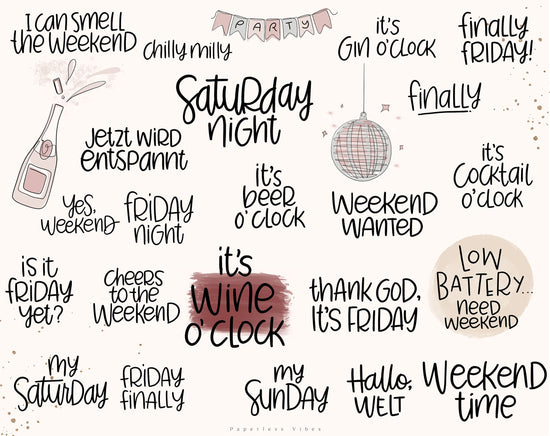 I CAN SMELL
THE WEEKEND
CHILLY MILLY
PARTY
it's
GIN O'CLOCK
finally
FRIDAY!
SATURDAY
NIGHT
finally
JETZT WIRD
ENTSPANNT
it's
COCKTAIL
O'CLOCK
yes,
WEEKEND
FRIDAY
NIGHT
it's
beer
O'CLOCK
WEEKEND
WANTED
is it
FRIDAY
yet?
CHEERS
to the
WEEKEND
it's
WINE
O'CLOCK
THANK GOD,
IT'S FRIDAY
LOW
BATTERY...
NEED
WEEKEND
my
SATURDAY
FRIDAY
FINALLY
my
SUNDAY
Hallo,
WELT
WEEKEND
time
Paperless Vibes